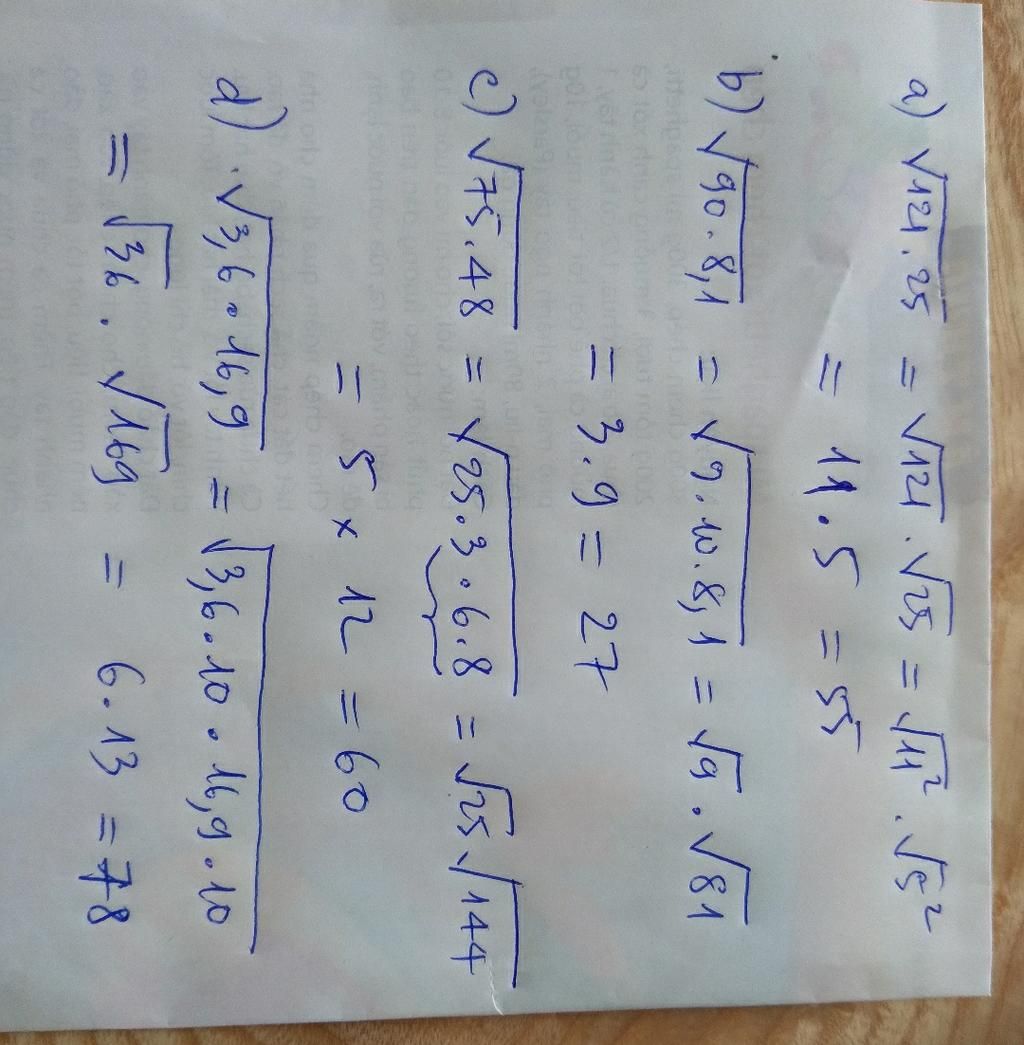 a) √121.25 = √121 . √25 = √11² . √5²
= 11.5 = 55
b) √90.8,1 = √9.10.8,1 = √9 . √81
= 3.9 = 27
c) √75.48 = √25.3.6.8 = √25 √144
= 5 × 12 = 60
d) √3,6.16,9 = √3,6.10.16,9.10
= √36 . √169 = 6.13 = 78